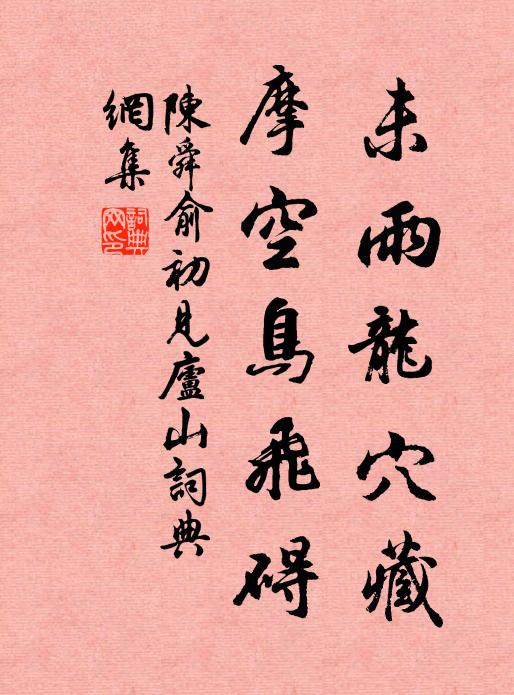 未雨龍穴藏
摩空鳥飛碍
陳舜俞初見廬山詞典
網集
詞典網印